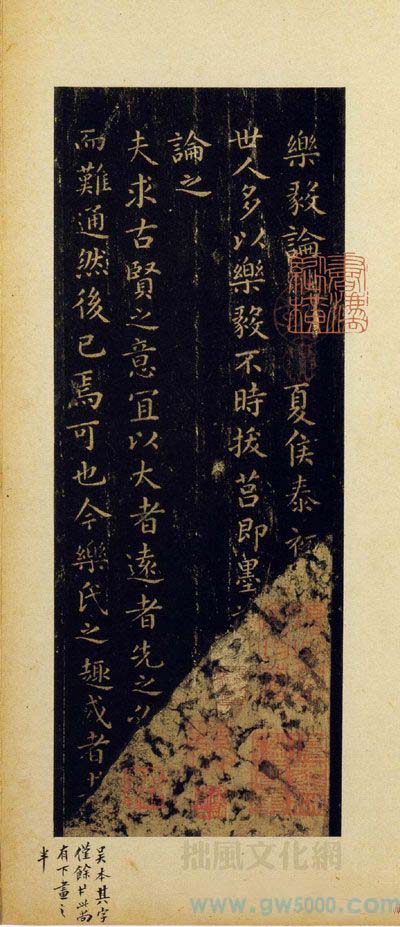 樂毅論 夏侯泰初
世人多以樂毅不時拔莒即墨
論之
夫求古賢之意宜以大者遠者先之必
而難通然後已焉可也今樂氏之趣或者其
吴本其字
僅餘廿此尚
有下畫之
半
拙風文化網
www.gw5000.com